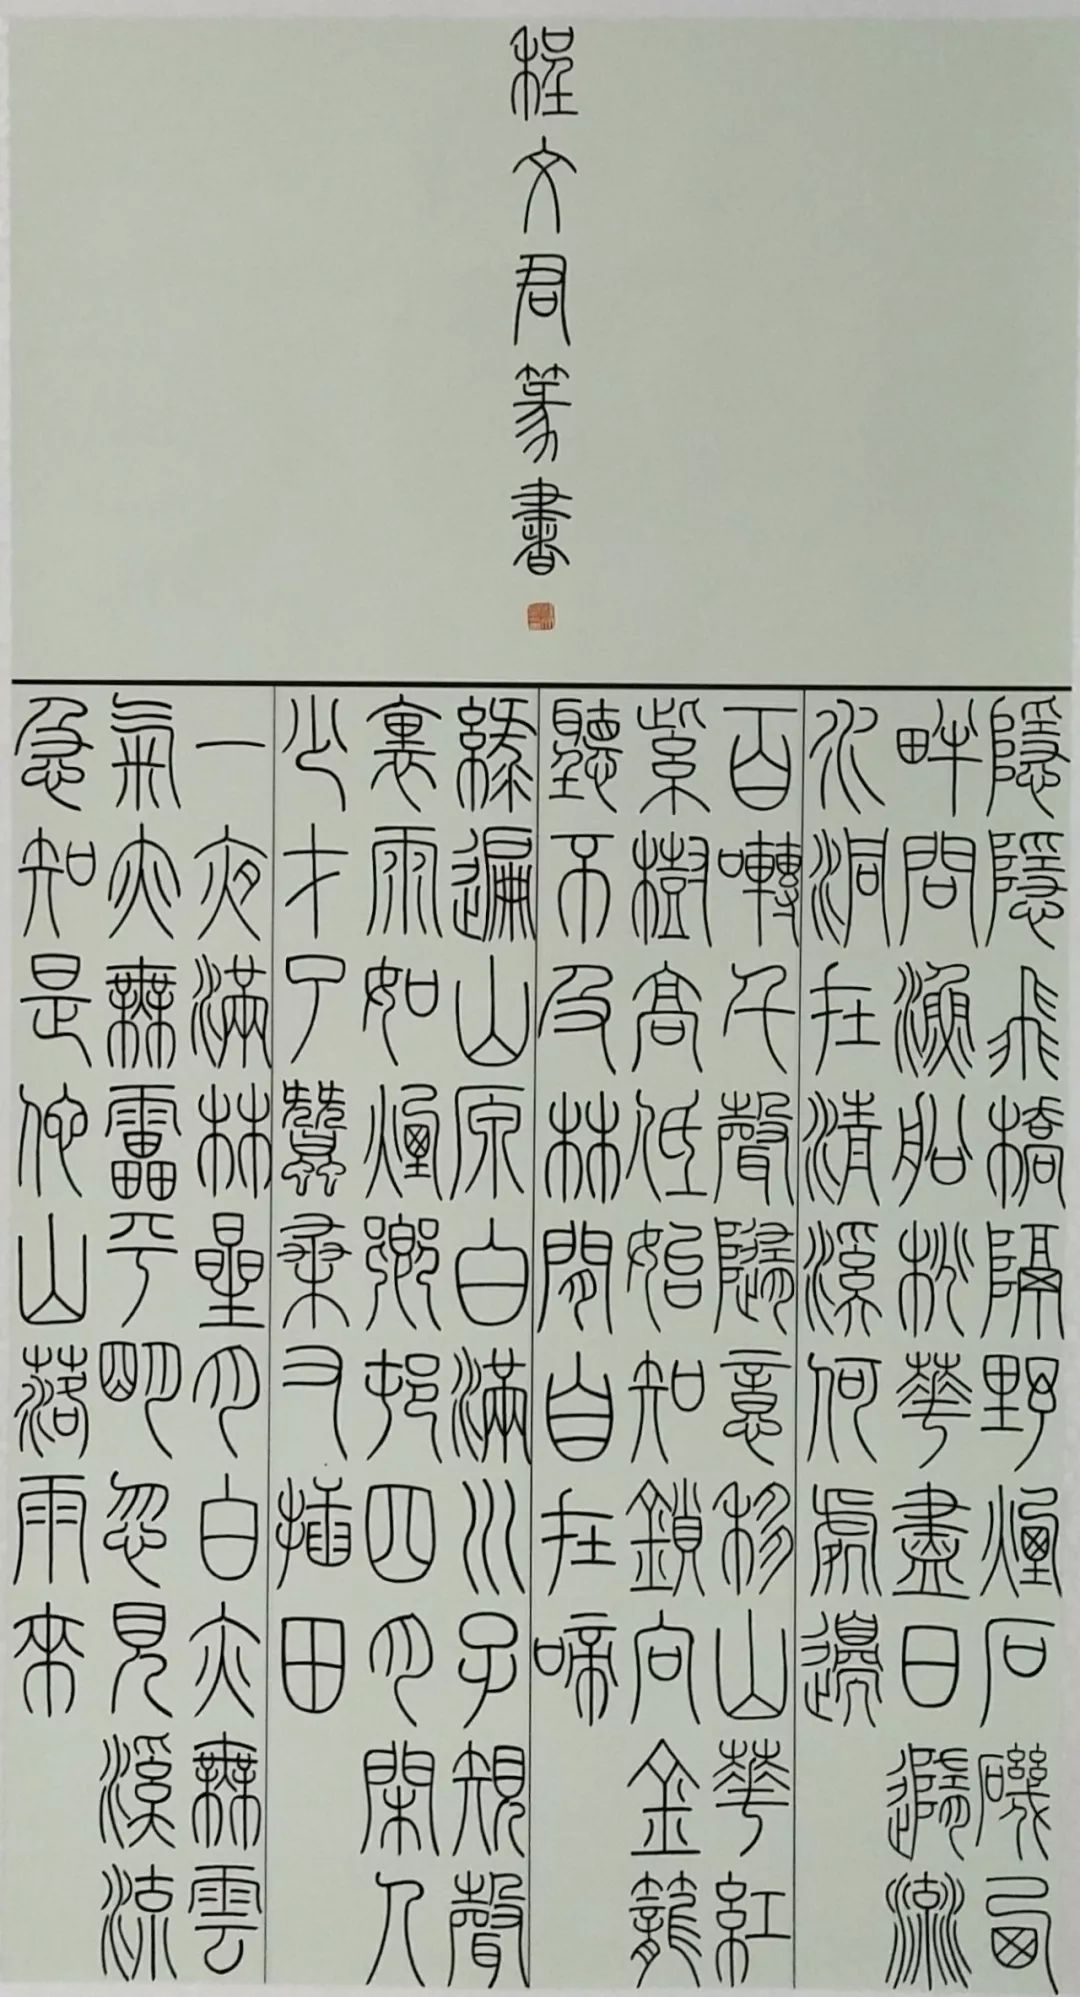 程文君篆書
隱隱飛橋隔野煙石磯西
畔問漁船桃華盡日隨流
水洞在清溪何處邊
百囀千聲隨意移山華紅
紫樹高低始知鎖向金籠
聽不及林閒自在啼
綠遍山原白滿川子規聲
裏雨如煙鄉邨四月閑人
少才了蠶桑又插田
一夜滿林星月白亦無雲
氣亦無雷平明忽見溪流
急知是他山落雨來